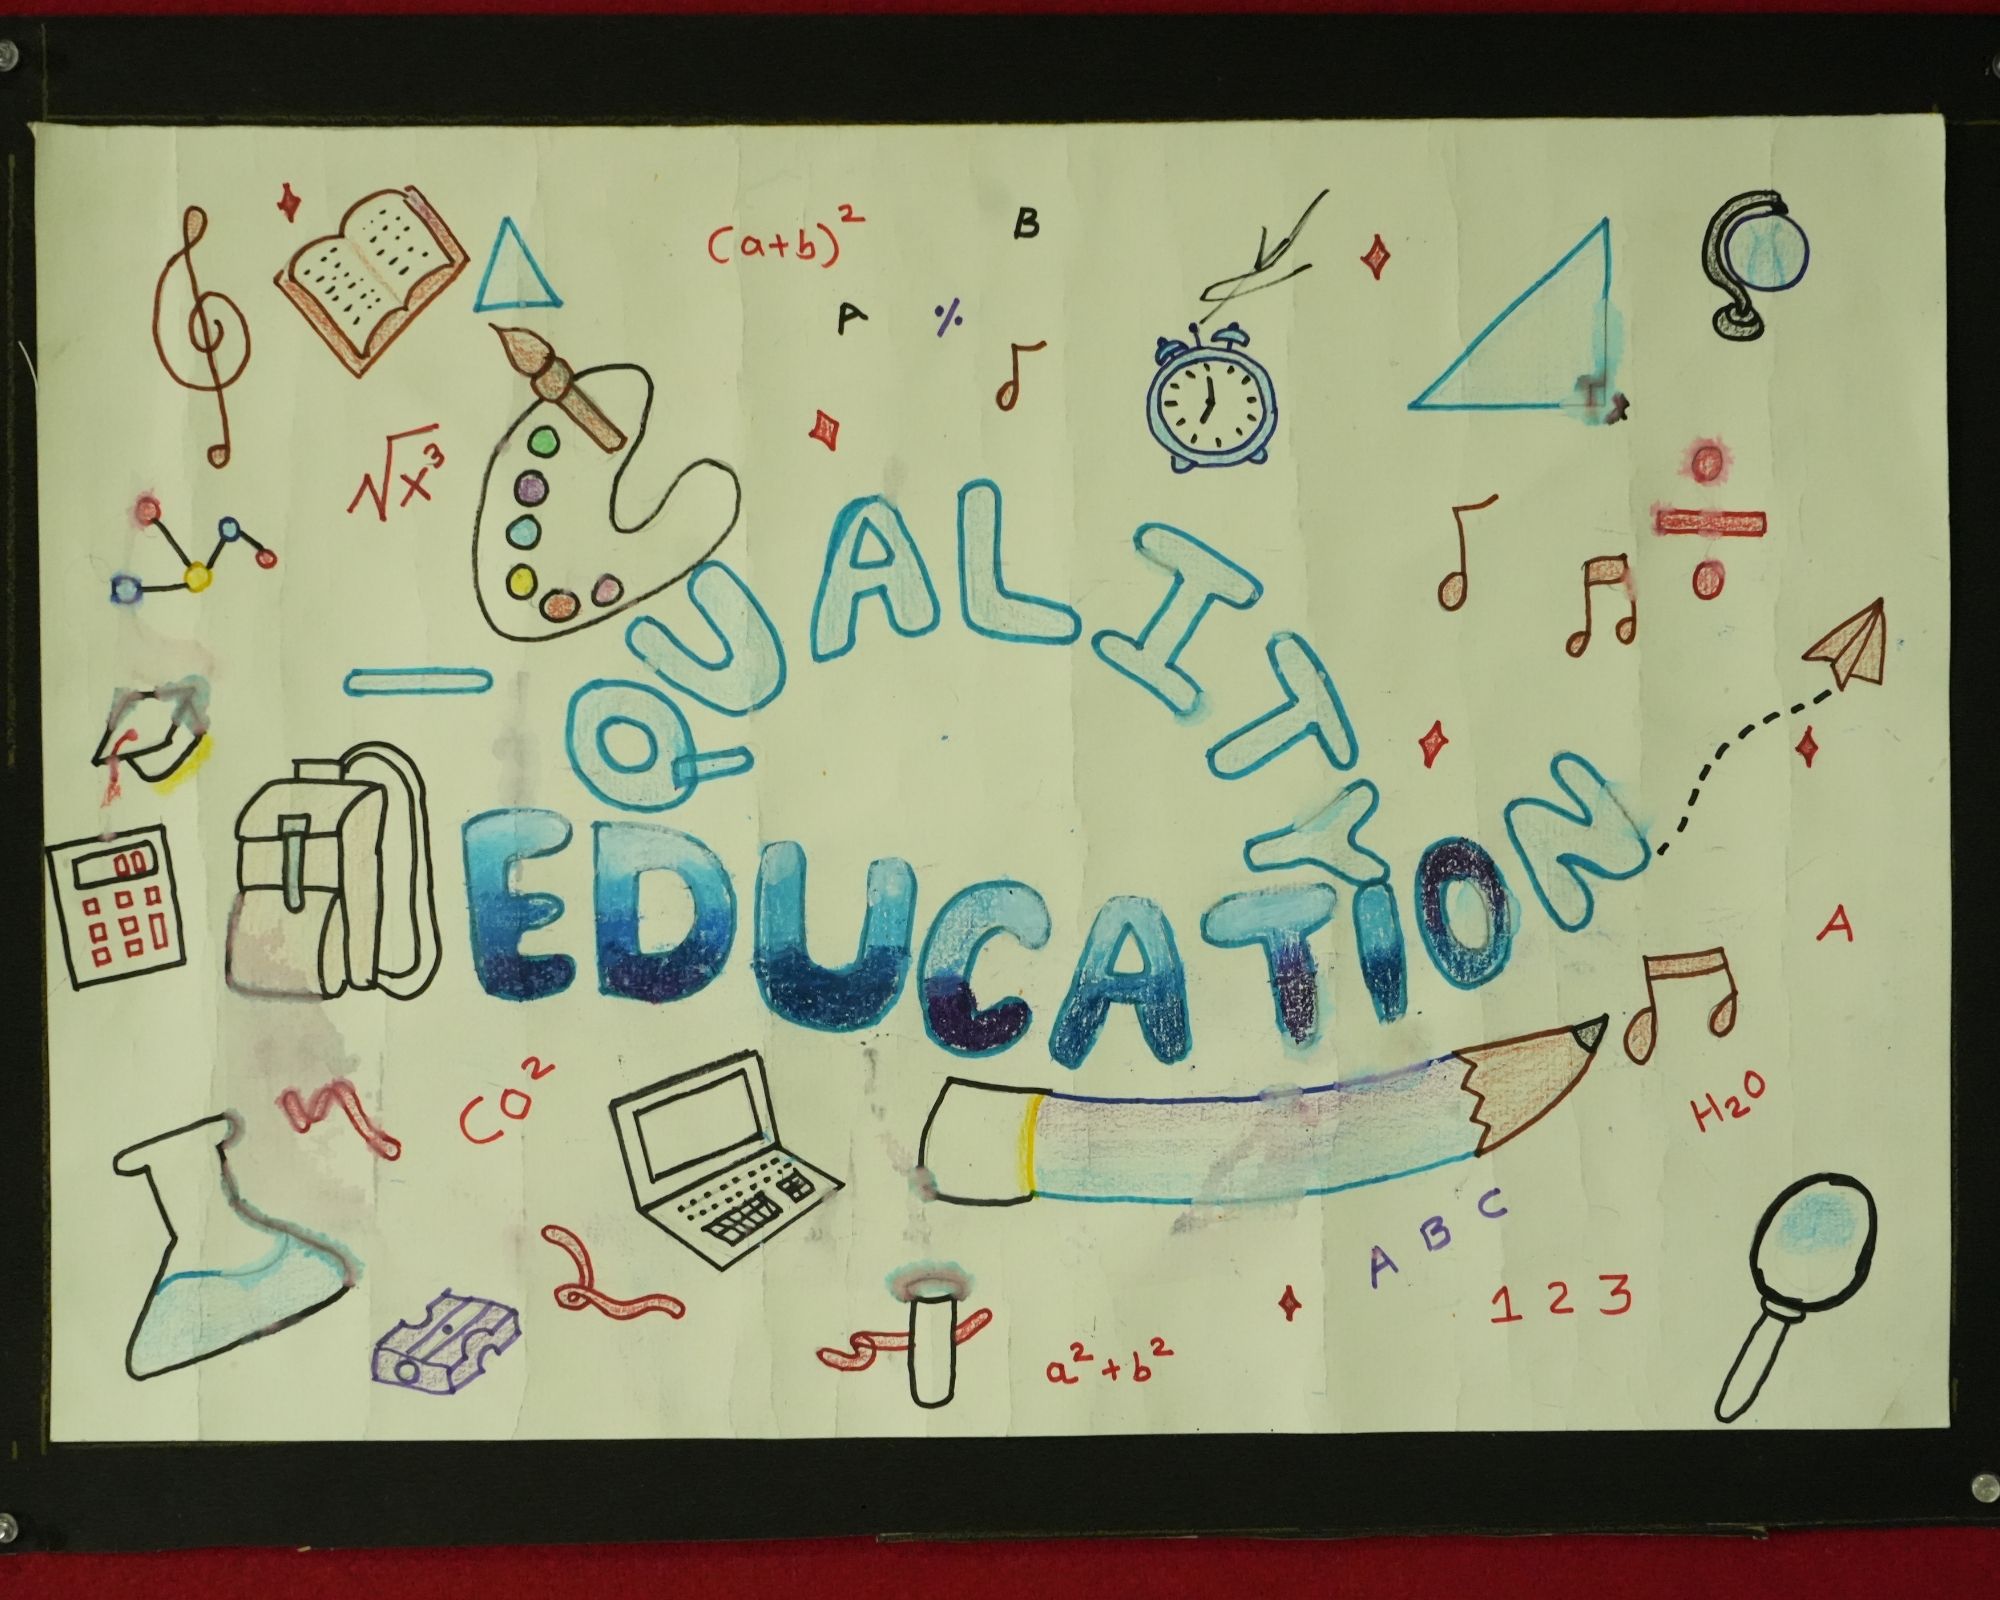 (a+b)²
B
A
%
√x³
÷
QUALITY
EDUCATION
A
00
CO²
H₂O
A B C
1 2 3
a²+b²